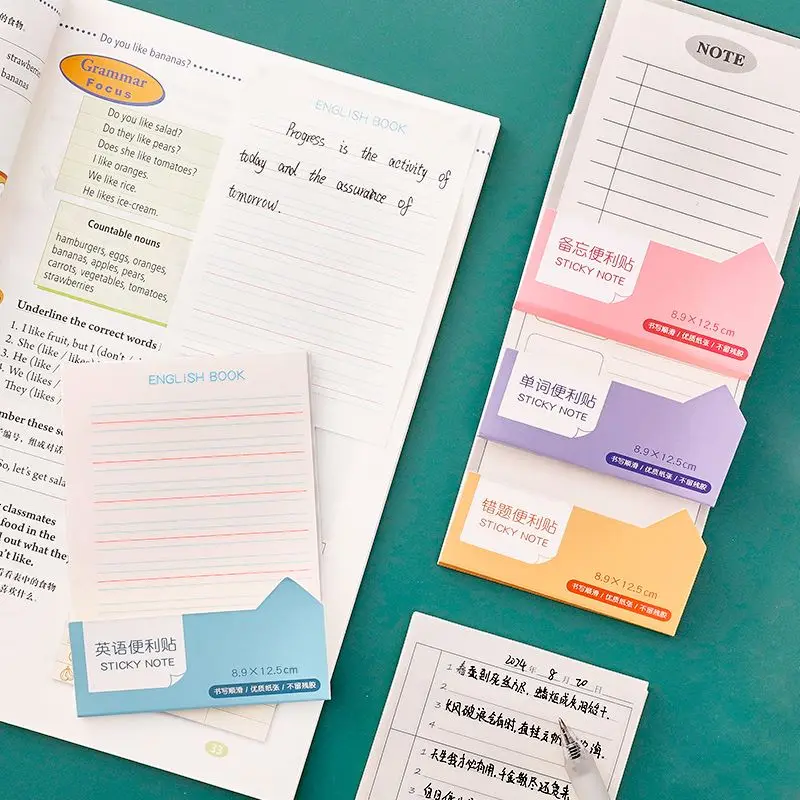 的食物
strawberries
bananas
Do you like bananas?
Grammar
Focus
Do you like salad?
Do they like pears?
Does she like tomatoes?
I like oranges.
We like rice.
He likes ice-cream.
Countable nouns
hamburgers, eggs, oranges,
bananas, apples, pears,
carrots, vegetables, tomatoes,
strawberries
Underline the correct words
1. I like fruit, but I (don't /
2. She (like / likes)
3. He (like /
4. We (likes /
They (likes /
mber these se
编号，组成对话
So, let's get sala
classmates
food in the
d out what they
n't like.
看表中的食物
喜欢什么。
33
ENGLISH BOOK
Progress is the activity of
today and the assurance of
tomorrow.
ENGLISH BOOK
英语便利贴
STICKY NOTE
8.9×12.5cm
书写顺滑 / 优质纸张 / 不留残胶
NOTE
备忘便利贴
STICKY NOTE
8.9×12.5cm
书写顺滑 / 优质纸张 / 不留残胶
单词便利贴
STICKY NOTE
8.9×12.5cm
书写顺滑 / 优质纸张 / 不留残胶
错题便利贴
STICKY NOTE
8.9×12.5cm
书写顺滑 / 优质纸张 / 不留残胶
2024年 8月20日
1 春蚕到死丝方尽，蜡炬成灰泪始干.
2
3 长风破浪会有时，直挂云帆
4
1 天生我才必有用，千金散尽还复来
2
3